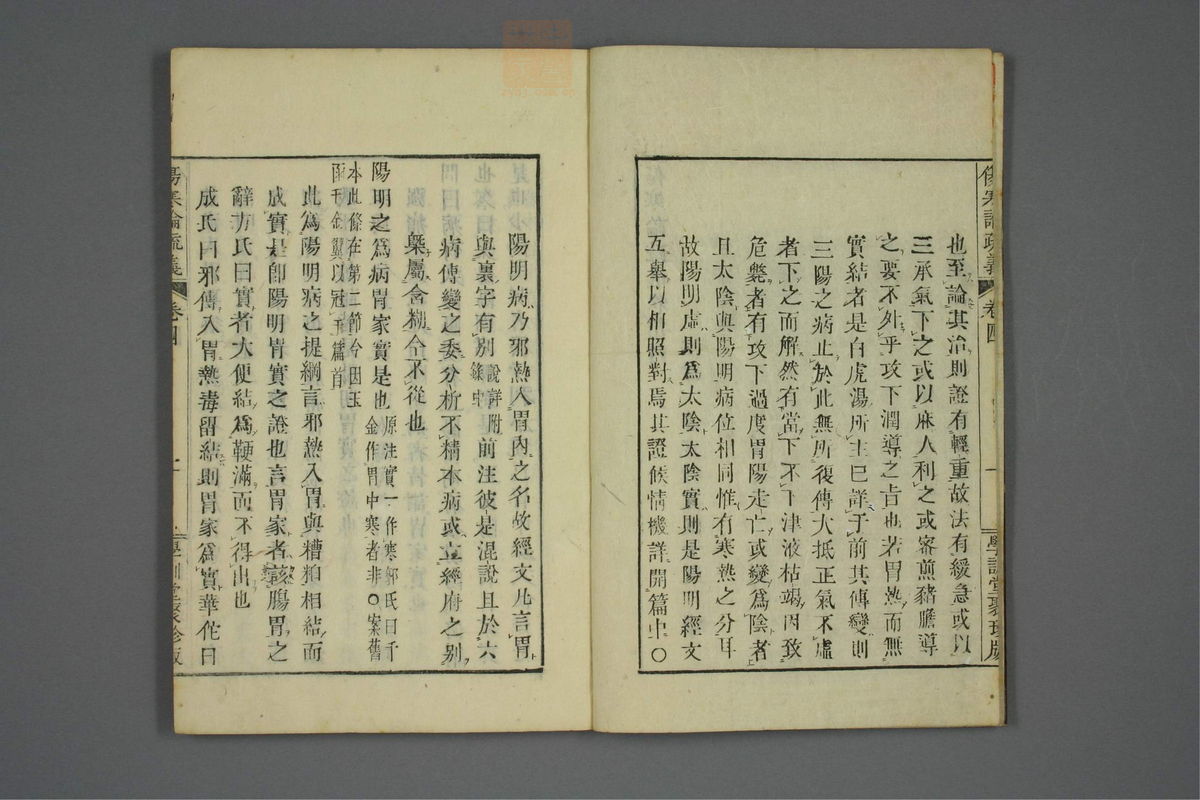 也至論其治則證有輕重故法有緩急或以
三承氣下之或以麻人利之或審煎豬膽導
之要不外乎攻下潤導之旨也若胃熱而無
實結者是白虎湯所主已詳于前其傳變則
三陽之病止於此無所復傳大抵正氣不虛
者下之而解然有當下不下津液枯竭因致
危斃者有攻下過度胃陽走亡或變爲陰者
且太陰與陽明病位相同惟有寒熱之分耳
故陽明虛則爲太陰太陰實則是陽明經文
五舉以相照對焉其證候情機詳開篇中〇
傷寒論疏義
卷四
一
學訓堂聚珍版
陽明病乃邪熱入胃內之名故經文凡言胃
與裏字有別說詳附錄中前注彼是混說且於六
病傳變之委分析不精本病或立經府之别
槩屬含糊今不從也
陽明之爲病胃家實是也原注實一作寒郭氏曰千金作胃中寒者非〇案舊
本此條在第二節今因玉函千金翼以冠于篇首
此爲陽明病之提綱言邪熱入胃與糟粕相結而
成實是卽陽明胃實之證也言胃家者該腸胃之
辭方氏曰實者大便結爲鞕滿而不得出也
成氏曰邪傳入胃熱毒留結則胃家爲實華佗曰
傷寒論疏義
卷四
學訓堂聚珍版